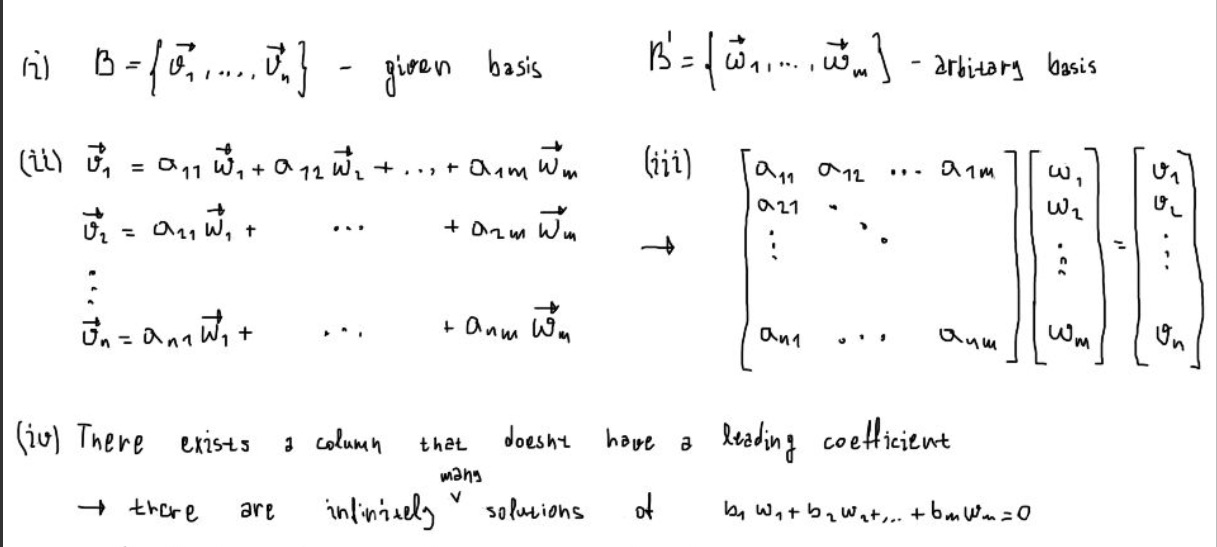 (i) B = {v⃗₁, ..., v⃗ₙ} - given basis B' = {w⃗₁, ..., w⃗ₘ} - arbitary basis
(ii) v⃗₁ = a₁₁ w⃗₁ + a₁₂ w⃗₂ + ... + a₁ₘ w⃗ₘ
v⃗₂ = a₂₁ w⃗₁ + ... + a₂ₘ w⃗ₘ
⋮
v⃗ₙ = aₙ₁ w⃗₁ + ... + aₙₘ w⃗ₘ
(iii) → [a₁₁ a₁₂ ... a₁ₘ; a₂₁ ⋱; ⋮; aₙ₁ ... aₙₘ] [w₁; w₂; ⋮; wₘ] = [v₁; v₂; ⋮; vₙ]
(iv) There exists a column that doesnt have a leading coefficient
→ there are infinitely many solutions of b₁ w₁ + b₂ w₂ + ... + bₘ wₘ = 0